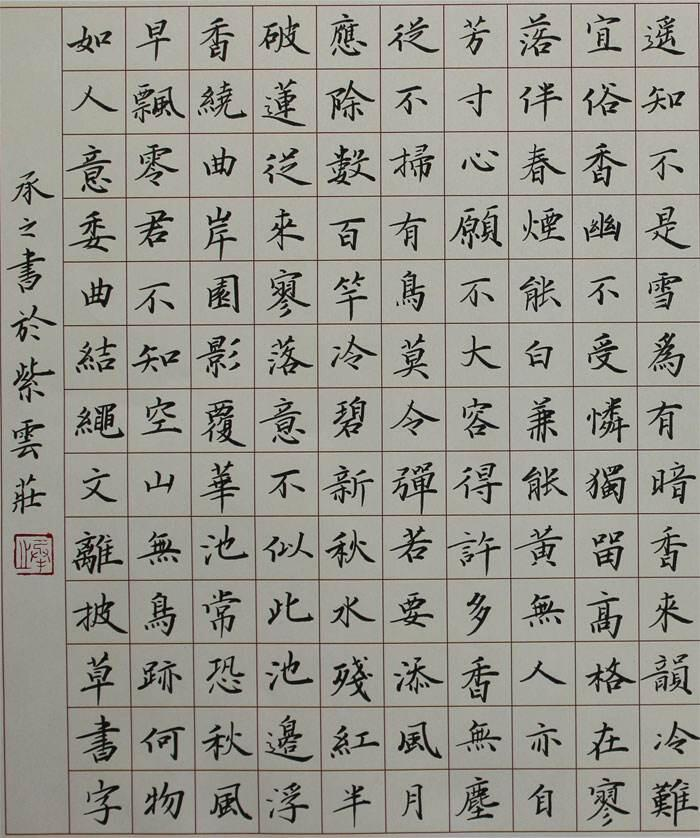 遥知不是雪為有暗香來韻冷難
宜俗香幽不受憐獨畱高格在寥
落伴春煙能白兼能黄無人亦自
芳寸心願不大容得許多香無塵
從不掃有鳥莫令彈若要添風月
應除數百竿冷碧新秋水殘紅半
破蓮從來寥落意不似此池邊浮
香繞曲岸圎影覆華池常恐秋風
早飄零君不知空山無鳥跡何物
如人意委曲結繩文離披草書字
承之書於紫雲莊